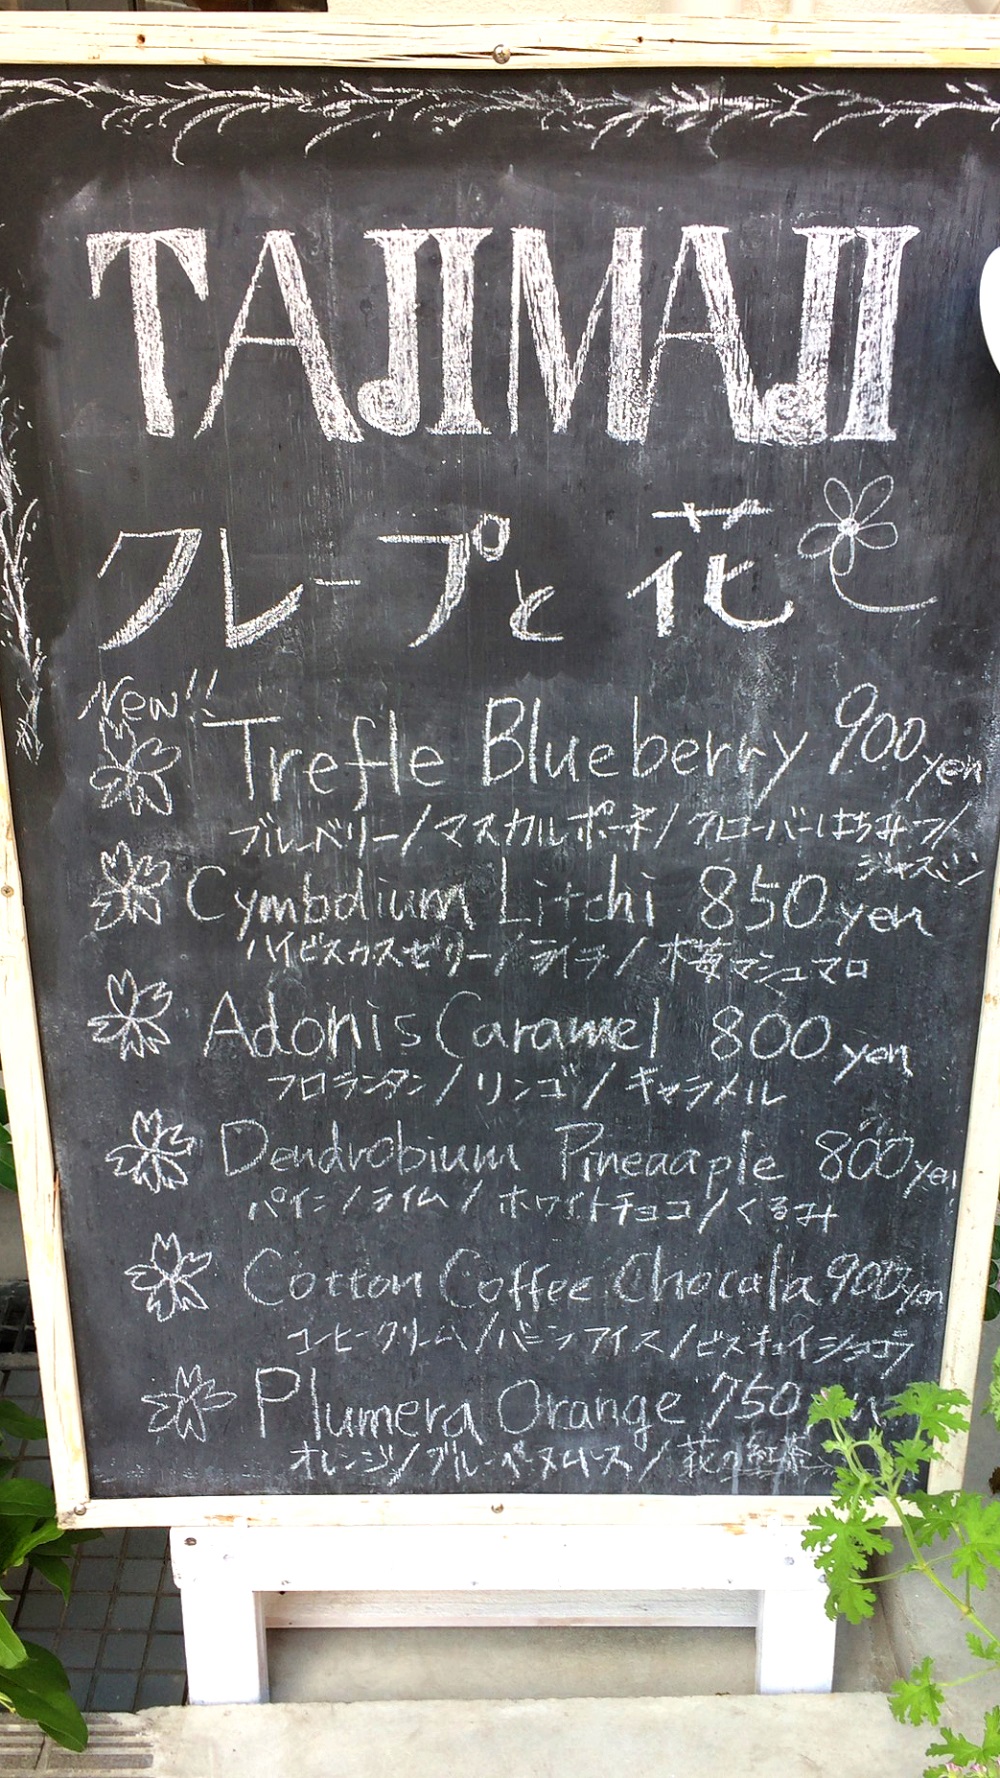 TAJIMAJI
クレープと花
New!!
Trefle Blueberry 900yen
ブルーベリー/マスカルポーネ/クローバーはちみつ/
ジャスミン
Cymbdium Litchi 850yen
ハイビスカスゼリー/ライチ/木苺マシュマロ
Adonis Caramel 800yen
フロランタン/リンゴ/キャラメル
Dendrobium Pineaaple 800yen
パイン/ライム/ホワイトチョコ/くるみ
Cotton Coffee Chocola 900yen
コーヒークリーム/バニラアイス/ビスキュイショコラ
Plumera Orange 750
オレンジ/ブルーベリームース/萩の紅茶